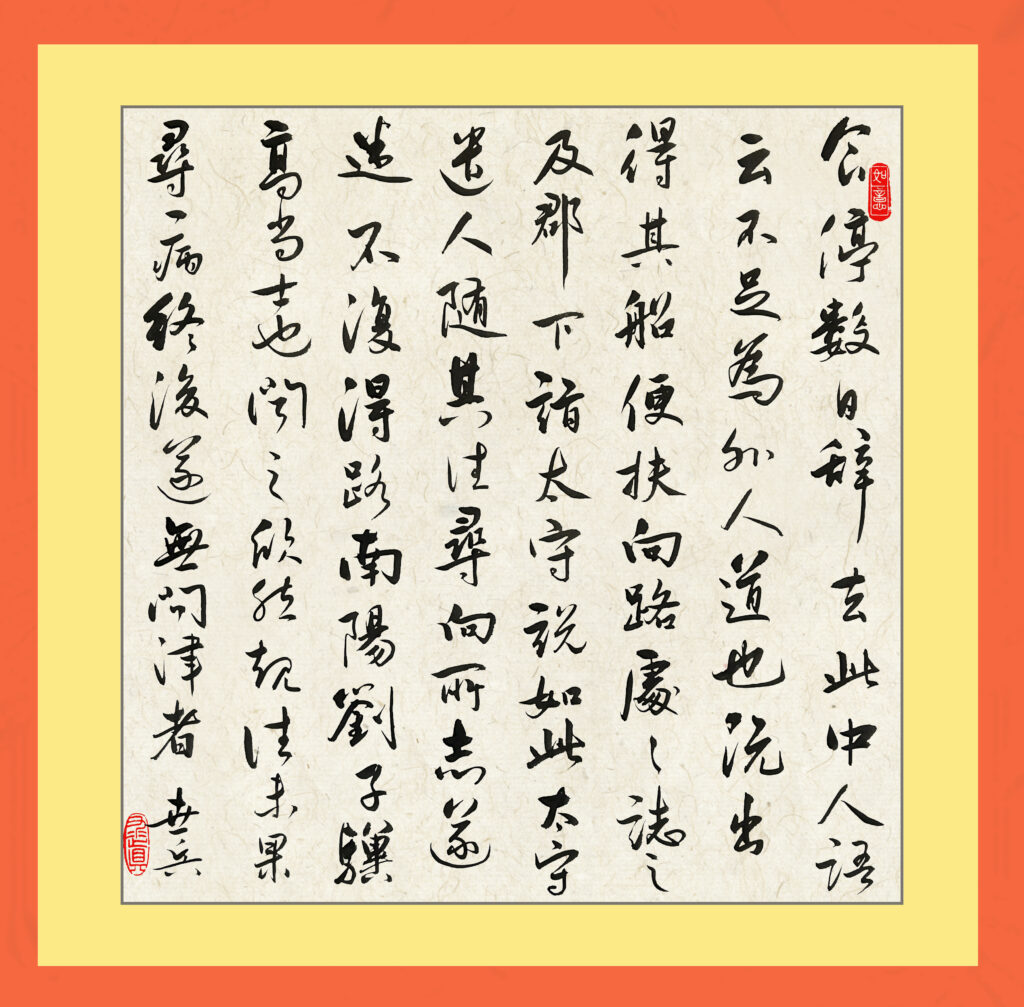 食停數日辭去此中人語
云不足為外人道也既出
得其船便扶向路處處誌之
及郡下詣太守說如此太守
遣人隨其往尋向所志遂
迷不復得路南陽劉子驥
高尚士也聞之欣然規往未果
尋病終後遂無問津者 世兵
如意